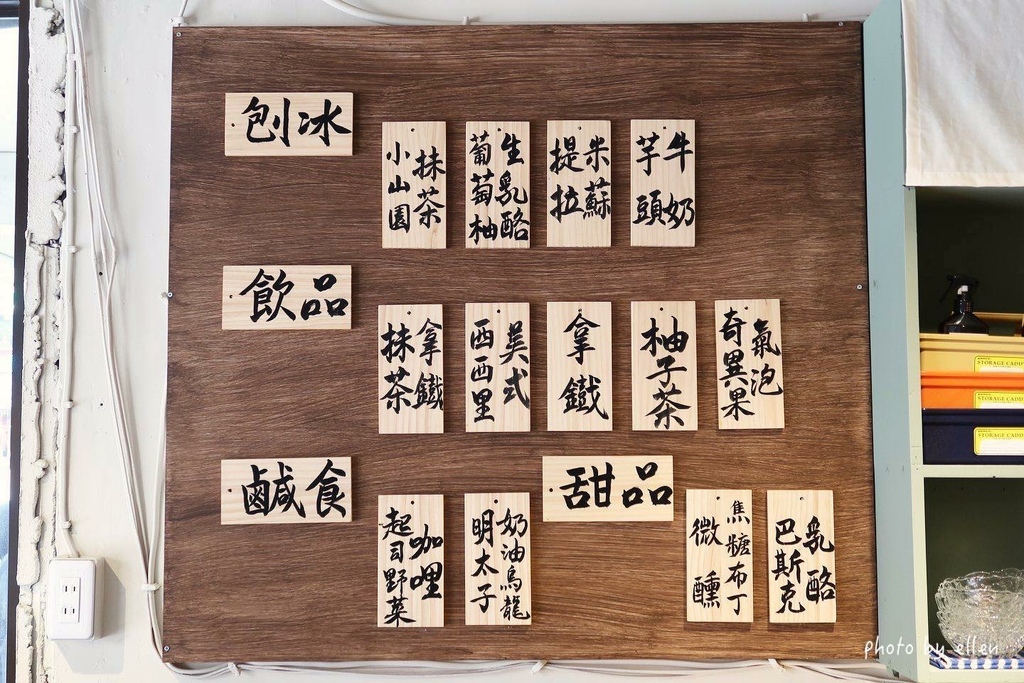 刨冰
小山園
抹茶
葡萄柚
生乳酪
提拉
米蘇
芋頭
牛奶
飲品
抹茶
拿鐵
西西里
美式
拿鐵
柚子茶
奇異果
氣泡
鹹食
起司野菜
咖哩
明太子
奶油烏龍
甜品
微醺
焦糖布丁
巴斯克
乳酪
STORAGE CADD
STORAGE CADD
STORAGE CADD
photo by ellen